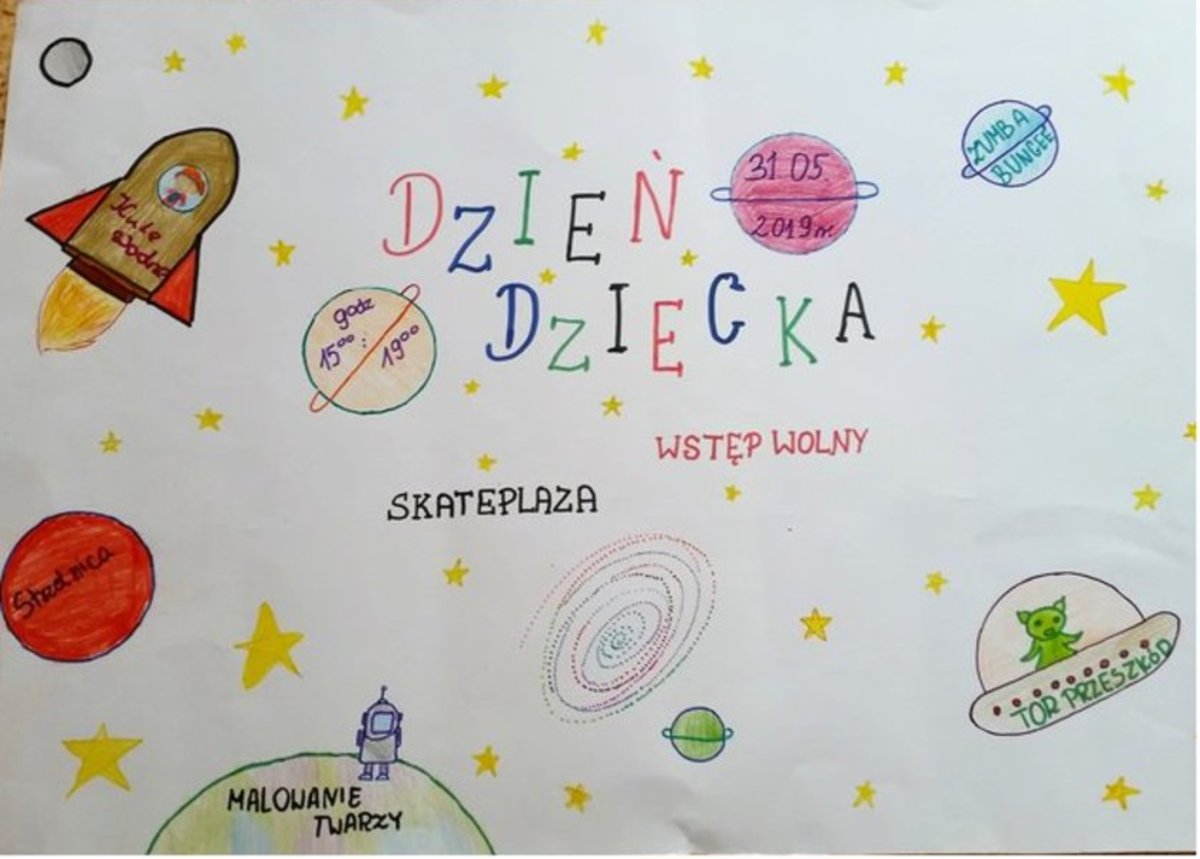 DZIEŃ
DZIECKA
31 05.
2019r.
ZUMBA
BUNGEE
Kule
wodne
godz
15⁰⁰ : 19⁰⁰
WSTĘP WOLNY
SKATEPLAZA
Strzelnica
TOR PRZESZKÓD
MALOWANIE
TWARZY